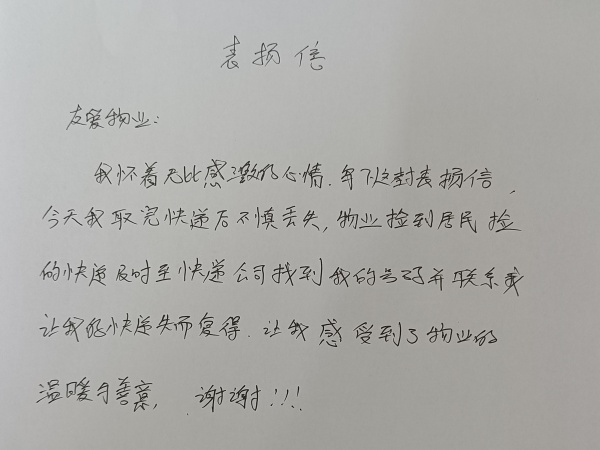 表损信
友爱物业:
我怀着无比感激的心情.写下这封表损信,
今天我取完快递后不慎丢失,物业捡到居民捡
的快递及时至快递公司找到我的号码并联系我
让我的快递失而复得.让我感受到了物业的
温暖与善意, 谢谢!!!